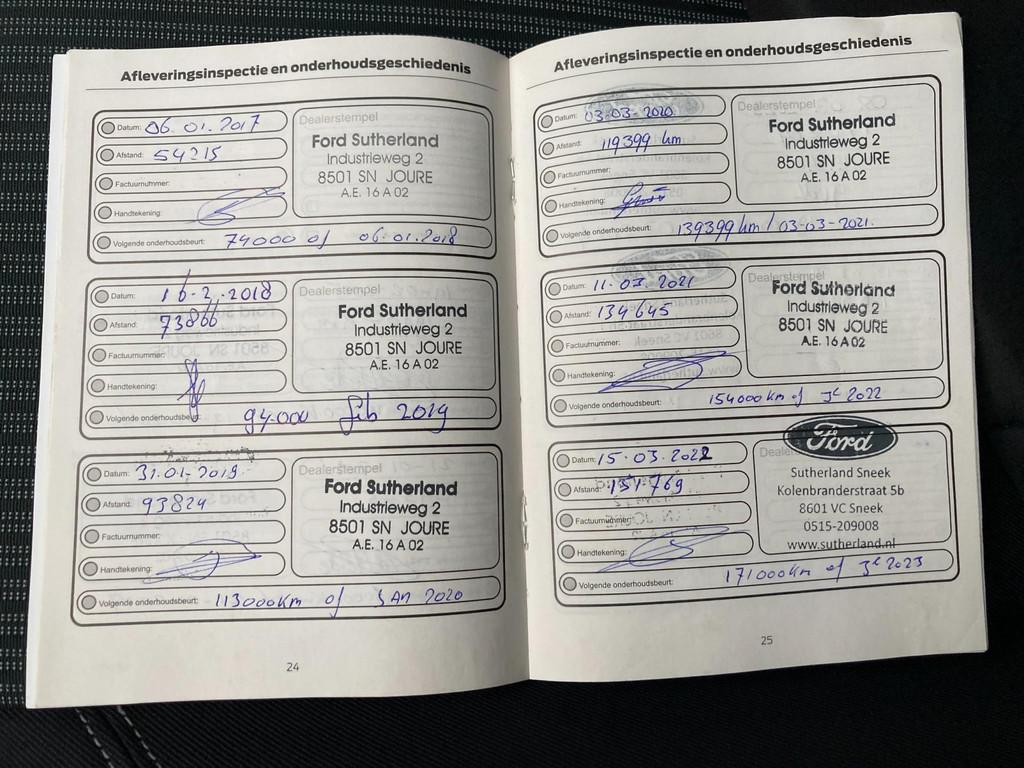 Afleveringsinspectie en onderhoudsgeschiedenis
Datum: 06.01.2017
Afstand: 54215
Factuurnummer:
Handtekening:
Volgende onderhoudsbeurt: 74000 of 06.01.2018
Dealerstempel
Ford Sutherland
Industrieweg 2
8501 SN JOURE
A.E. 16 A 02
Datum: 16-2-2018
Afstand: 73866
Factuurnummer:
Handtekening:
Volgende onderhoudsbeurt: 94.000 feb 2019
Dealerstempel
Ford Sutherland
Industrieweg 2
8501 SN JOURE
A.E. 16 A 02
Datum: 31-01-2019
Afstand: 93824
Factuurnummer:
Handtekening:
Volgende onderhoudsbeurt: 113000km of JAN 2020
Dealerstempel
Ford Sutherland
Industrieweg 2
8501 SN JOURE
A.E. 16 A 02
24
Afleveringsinspectie en onderhoudsgeschiedenis
Datum: 03-03-2020
Afstand: 119399 km
Factuurnummer:
Handtekening:
Volgende onderhoudsbeurt: 139399 km / 03-03-2021.
Dealerstempel
Ford Sutherland
Industrieweg 2
8501 SN JOURE
A.E. 16 A 02
Datum: 11-03.2021
Afstand: 134645
Factuurnummer:
Handtekening:
Volgende onderhoudsbeurt: 154000km of 2022
Dealerstempel
Ford Sutherland
Industrieweg 2
8501 SN JOURE
A.E. 16 A 02
Datum: 15.03.2022
Afstand: 151769
Factuurnummer:
Handtekening:
Volgende onderhoudsbeurt: 171000km of 2023
Ford
Sutherland Sneek
Kolenbranderstraat 5b
8601 VC Sneek
0515-209008
www.sutherland.nl
25